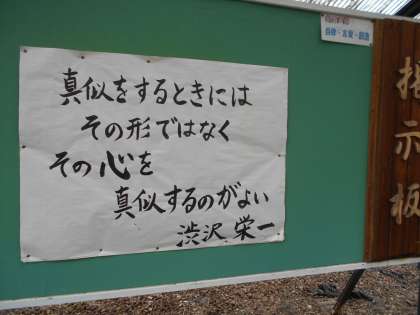 真似をするときには
その形ではなく
その心を
真似するのがよい
渋沢栄一
掲示板